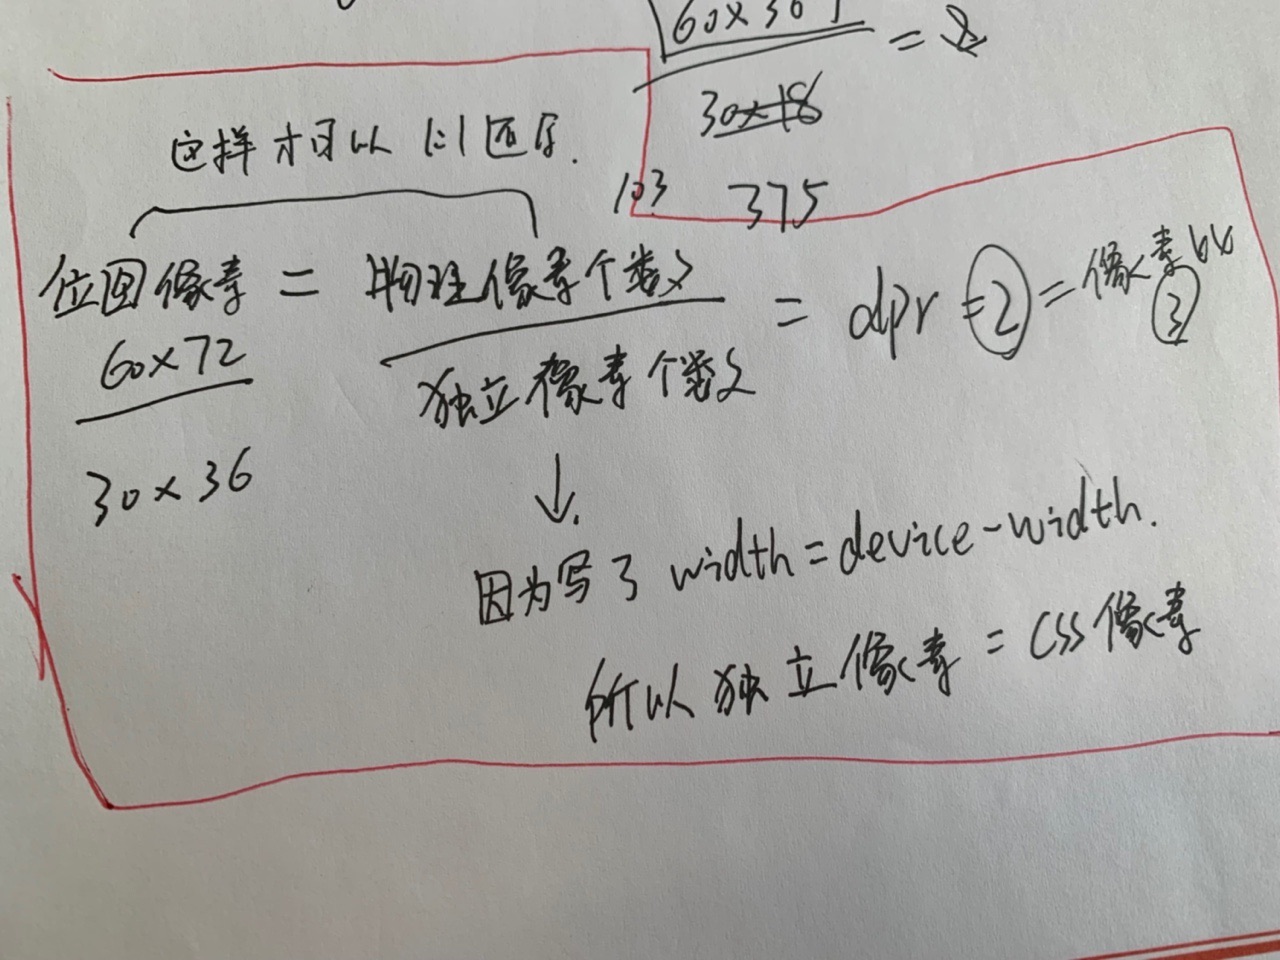 60×36
= 2
30×18
103 375
这样才可以 1:1 匹配.
位图像素 = 物理像素个数 / 独立像素个数 = dpr = 2 = 像素比
3
60×72
30×36
↓
因为写了 width=device-width.
所以 独立像素 = CSS像素